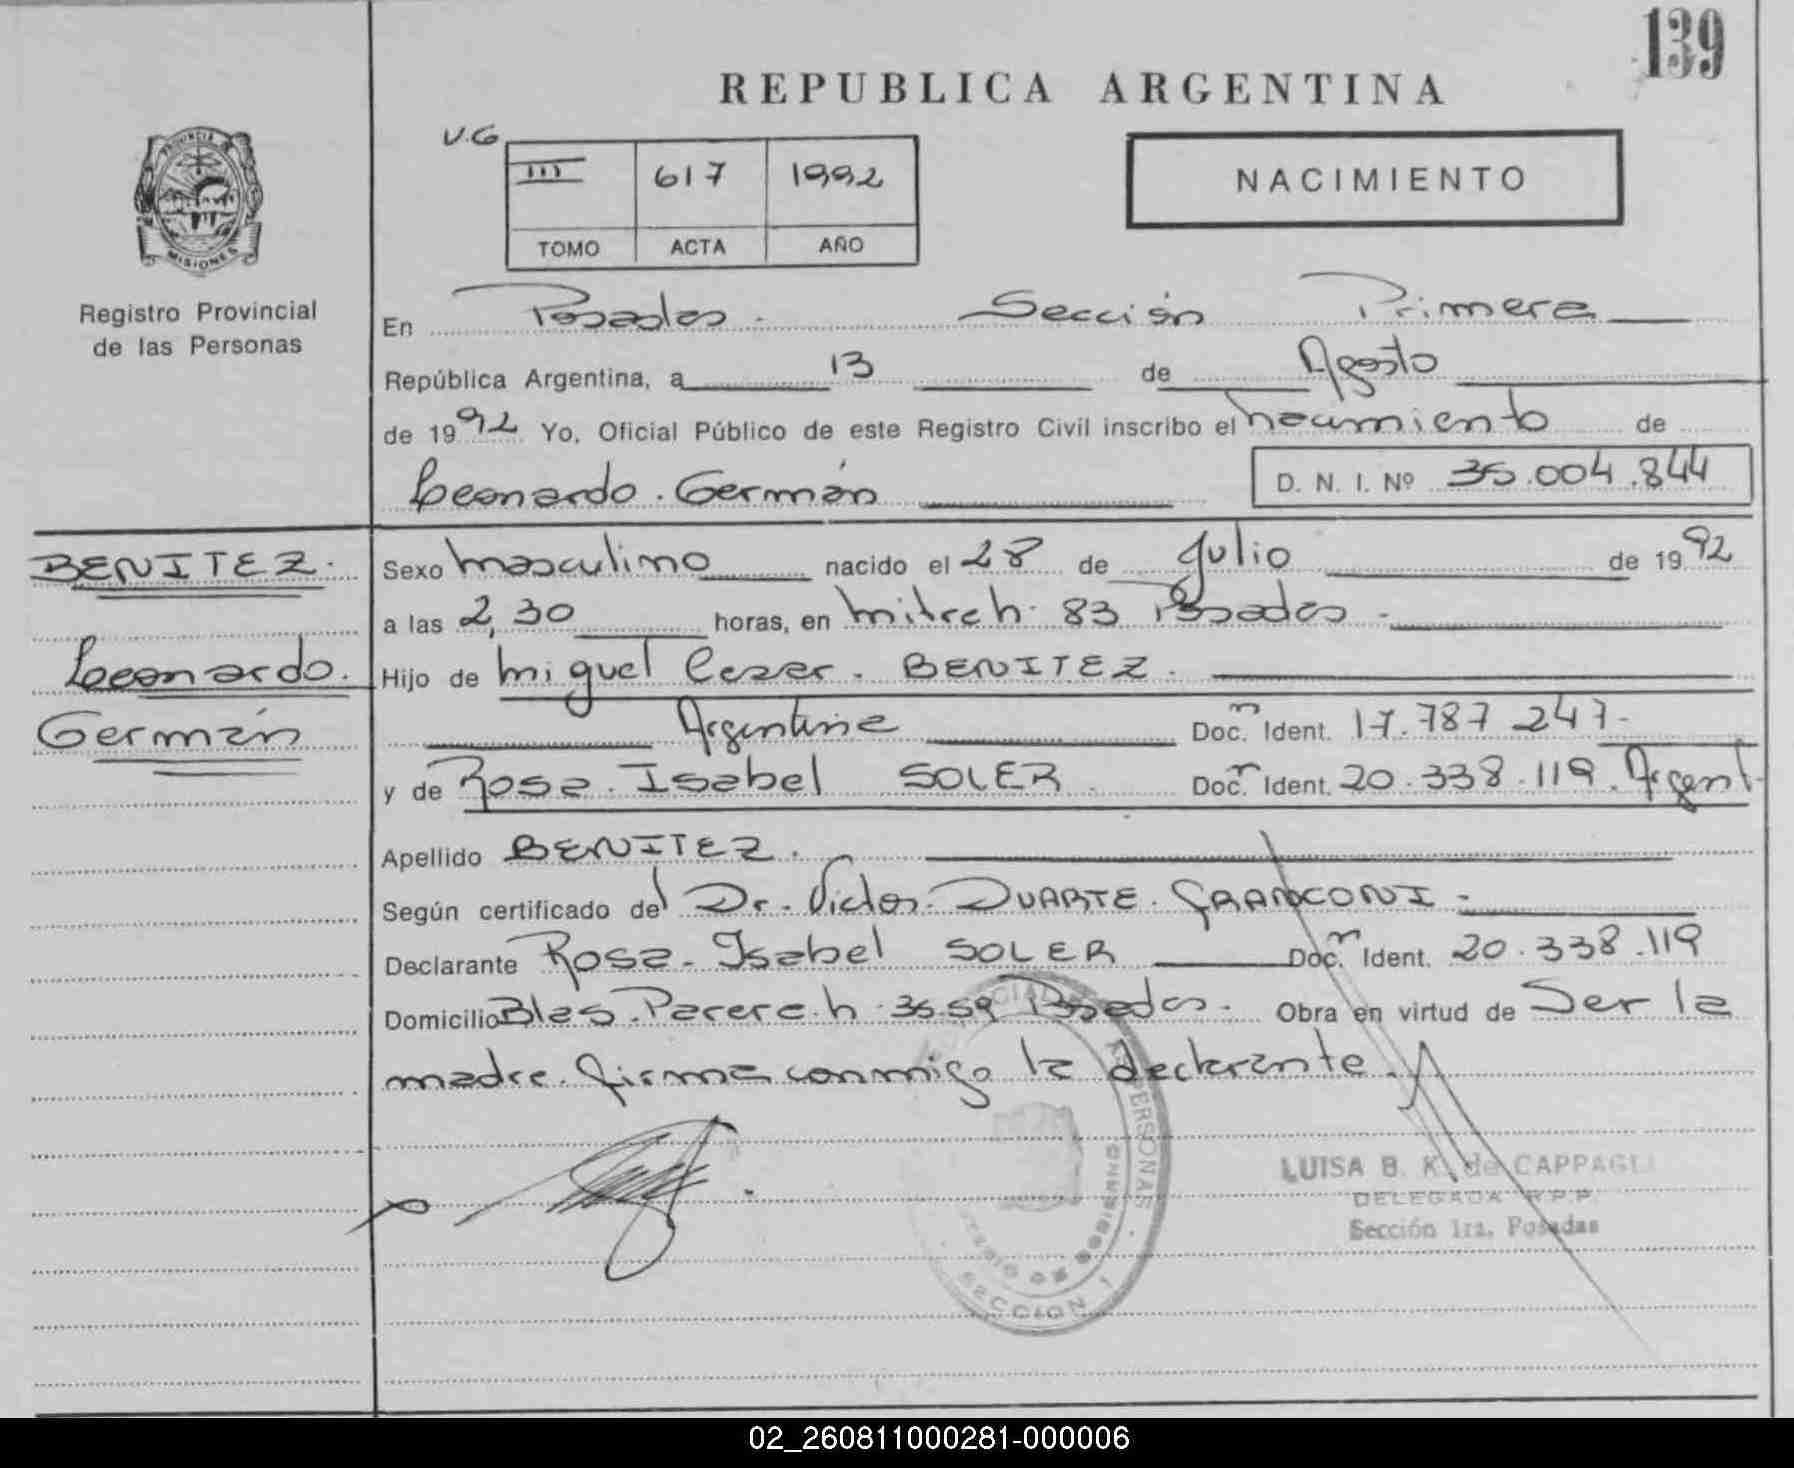 139
REPUBLICA ARGENTINA
V.G
III 617 1992
TOMO ACTA AÑO
NACIMIENTO
PROVINCIA
MISIONES
Registro Provincial
de las Personas
En Posadas. Sección Primera
República Argentina, a 13 de Agosto
de 1992 Yo, Oficial Público de este Registro Civil inscribo el nacimiento de
Leonardo. Germán D. N. I. Nº 35.004.844
BENITEZ.
Leonardo.
Germán
Sexo masculino nacido el 28 de Julio de 1992
a las 2,30 horas, en Mitre h. 83 Posadas.
Hijo de Miguel Cesar. BENITEZ.
Argentina Doc. n Ident. 17.787.247.
y de Rosa. Isabel SOLER. Doc. n Ident. 20.338.119. Argent.
Apellido BENITEZ.
Según certificado del Dr. Victor. DUARTE.
Declarante Rosa. Isabel SOLER Doc. n Ident. 20.338.119
Domicilio Blas. Parera. h. 3559 Posadas. Obra en virtud de Ser la
madre. firma conmigo la declarante.
PERSONAS
SECCION 1
LUISA B. K. de CAPPAGLI
DELEGADA R.P.P.
Sección 1ra. Posadas
02_260811000281-000006